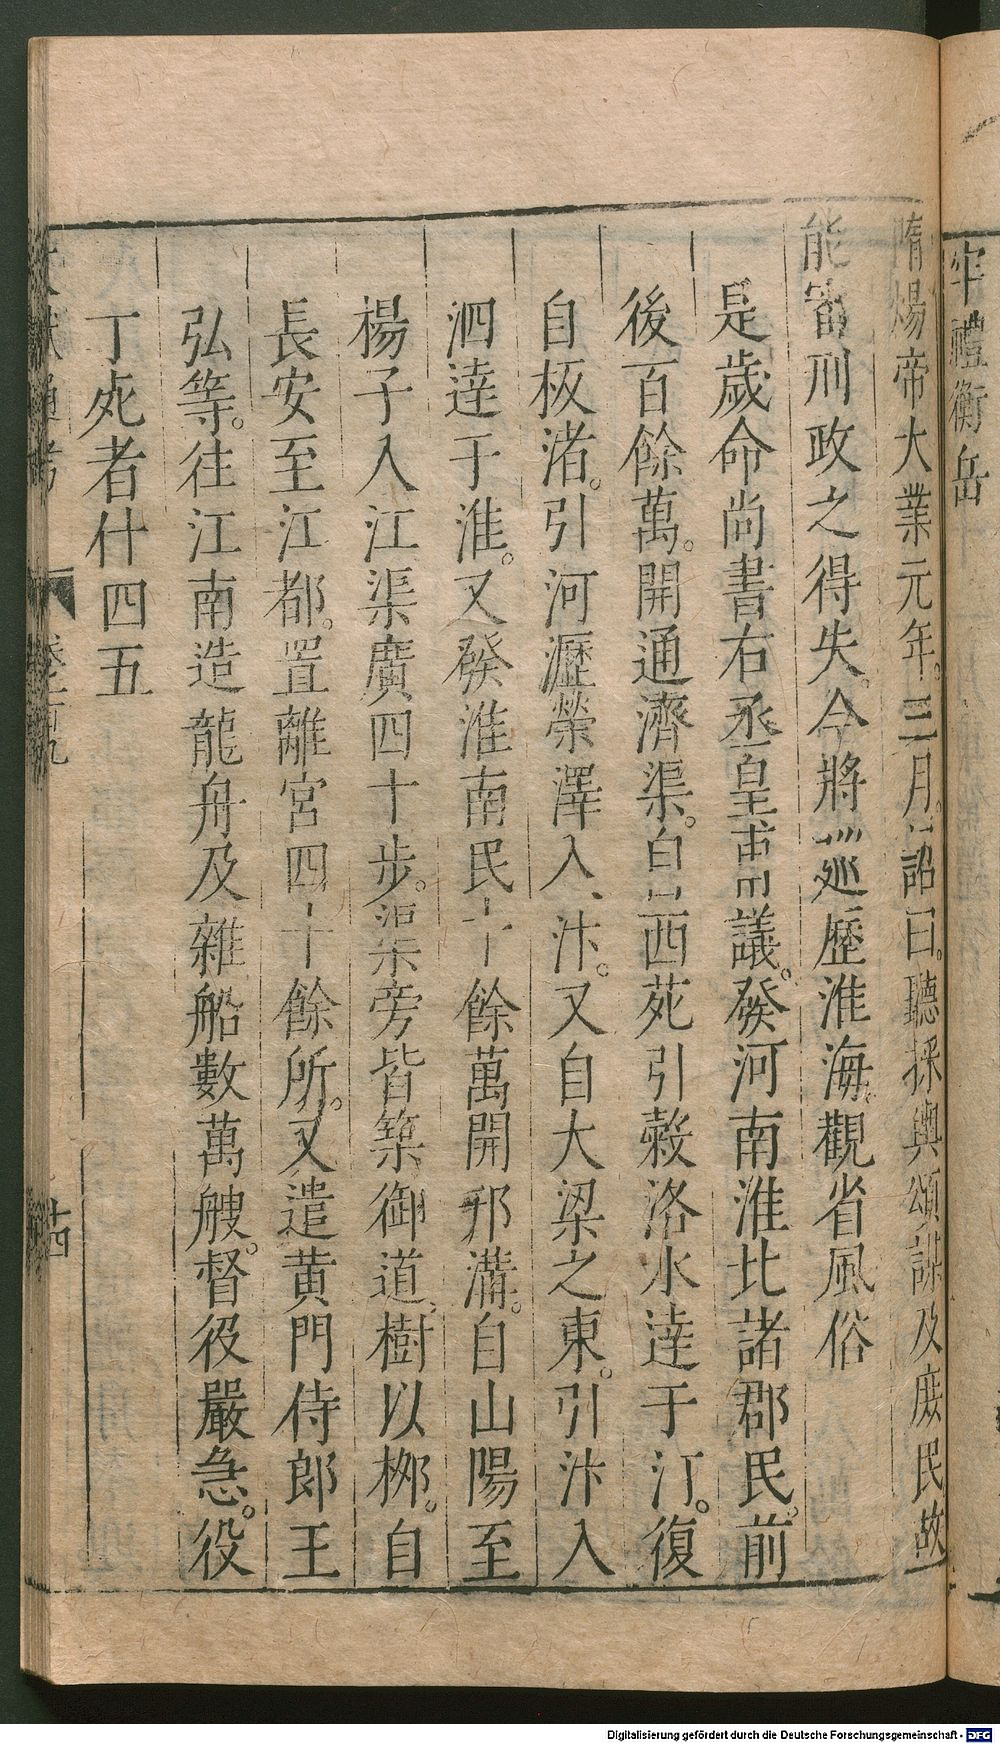 牢禮衡岳
隋煬帝大業元年。三月。詔曰。聽採輿頌謀及庶民故
能審刑政之得失。今將巡歷淮海。觀省風俗
是歲命尚書右丞皇甫議。發河南淮北諸郡民。前
後百餘萬。開通濟渠。自西苑引榖洛水逹于河。復
自板渚。引河瀝滎澤入、汴。又自大梁之東。引汴入
泗逹于淮。又發淮南民十餘萬開邗溝。自山陽至
楊子入江渠廣四十步。渠旁皆築御道、樹以栁。自
長安至江都。置離宮四十餘所。又遣黄門侍郎王
弘等。往江南造龍舟及雜船數萬艘。督役嚴急。役
丁死者什四五
文獻通考
卷之一百九
十四
Digitalisierung gefördert durch die Deutsche Forschungsgemeinschaft - DFG